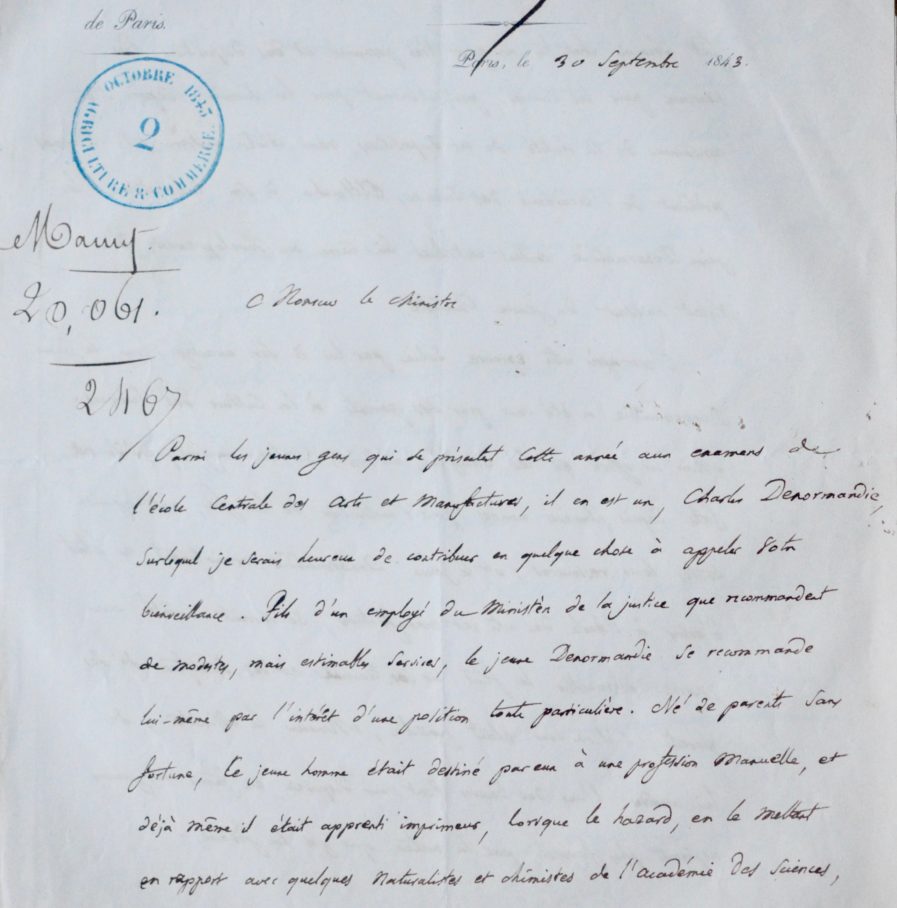 de Paris.
Paris, le 30 Septembre 1843.
OCTOBRE 1843
2
AGRICULTURE & COMMERCE.
20,061.
2467
Monsieur le Ministre
Parmi les jeunes gens qui se présentent cette année aux examens de
l'école Centrale des Arts et Manufactures, il en est un, Charles Denormandie,
sur lequel je serais heureux de contribuer en quelque chose à appeler votre
bienveillance. Fils d'un employé du Ministère de la justice que recommandent
de modestes, mais estimables services, le jeune Denormandie se recommande
lui-même par l'intérêt d'une position toute particulière. Né de parents sans
fortune, ce jeune homme était destiné par eux à une profession manuelle, et
déjà même il était apprenti imprimeur, lorsque le hazard, en le mettant
en rapport avec quelques naturalistes et chimistes de l'académie des Sciences,